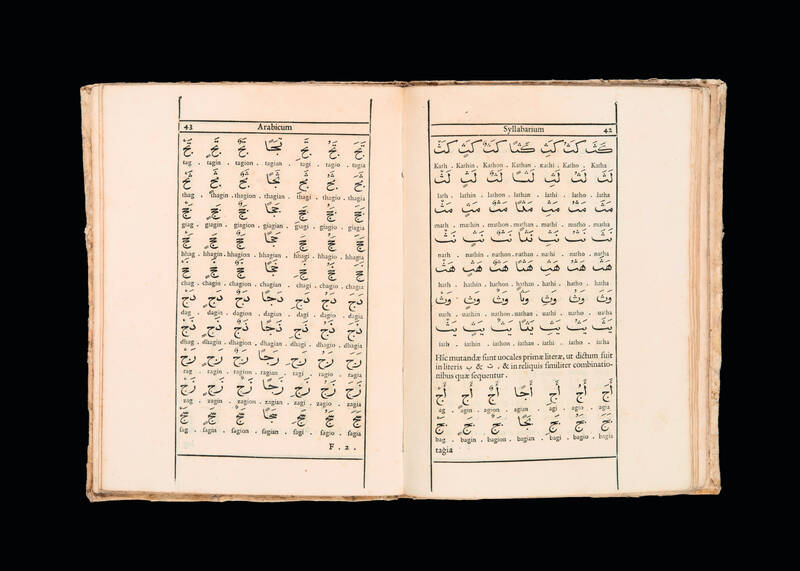 Syllabarium 42
كَثَ كَثُ كَثِ كَثًا كَثٌ كَثٍ كَثْ
Kath . Kathin . Kathon . Kathan . Kathi . Katho . Katha
لَثَ لَثُ لَثِ لَثًا لَثٌ لَثٍ لَثْ
lath . lathin . lathon . lathan . lathi . latho . latha
مَثَ مَثُ مَثِ مَثًا مَثٌ مَثٍ مَثْ
math . mathin . mathon . mathan . mathi . matho . matha
نَثَ نَثُ نَثِ نَثًا نَثٌ نَثٍ نَثْ
nath . nathin . nathon . nathan . nathi . natho . natha
هَثَ هَثُ هَثِ هَثًا هَثٌ هَثٍ هَثْ
hath . hathin . hathon . hathan . hathi . hatho . hatha
وَثَ وَثُ وَثِ وَثًا وَثٌ وَثٍ وَثْ
uath . uathin . uathon . uathan . uathi . uatho . uatha
يَثَ يَثُ يَثِ يَثًا يَثٌ يَثٍ يَثْ
iath . iathin . iathon . iathan . iathi . iatho . iatha
Hîc mutandæ sunt uocales primæ literæ, ut dictum fuit
in literis ب & ت , & in reliquis similiter combinatio-
nibus quæ sequentur .
أَجَ أَجُ أَجِ أَجًا أَجٌ أَجٍ أَجْ
ag . agin . agion . agian . agi . agio . agia
بَجَ بَجُ بَجِ بَجًا بَجٌ بَجٍ بَجْ
bag . bagin . bagion . bagian . bagi . bagio . bagia
tagia
43 Arabicum
تَجَ تَجُ تَجِ تَجًا تَجٌ تَجٍ تَجْ
tag . tagin . tagion . tagian . tagi . tagio . tagia
ثَجَ ثَجُ ثَجِ ثَجًا ثَجٌ ثَجٍ ثَجْ
thag . thagin . thagion . thagian . thagi . thagio . thagia
جَجَ جَجُ جَجِ جَجًا جَجٌ جَجٍ جَجْ
giag . giagin . giagion . giagian . giagi . giagio . giagia
حَجَ حَجُ حَجِ حَجًا حَجٌ حَجٍ حَجْ
hhag . hhagin . hhagion . hhagian . hhagi . hhagio . hhagia
خَجَ خَجُ خَجِ خَجًا خَجٌ خَجٍ خَجْ
chag . chagin . chagion . chagian . chagi . chagio . chagia
دَجَ دَجُ دَجِ دَجًا دَجٌ دَجٍ دَجْ
dag . dagin . dagion . dagian . dagi . dagio . dagia
ذَجَ ذَجُ ذَجِ ذَجًا ذَجٌ ذَجٍ ذَجْ
dhag . dhagin . dhagion . dhagian . dhagi . dhagio . dhagia
رَجَ رَجُ رَجِ رَجًا رَجٌ رَجٍ رَجْ
rag . ragin . ragion . ragian . ragi . ragio . ragia
زَجَ زَجُ زَجِ زَجًا زَجٌ زَجٍ زَجْ
zag . zagin . zagion . zagian . zagi . zagio . zagia
سَجَ سَجُ سَجِ سَجًا سَجٌ سَجٍ سَجْ
sag . sagin . sagion . sagian . sagi . sagio . sagia
F . 2 .